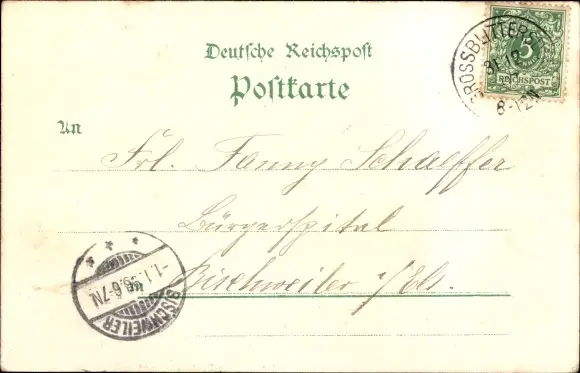 Deutsche Reichspost
Postkarte
5
REICHSPOST
31.12
8-12N
An
Frl. Fanny Schaeffer
Bürgerspital
Bischweiler i/Els.
in
BISCHWEILER
1.1.
6-7N.